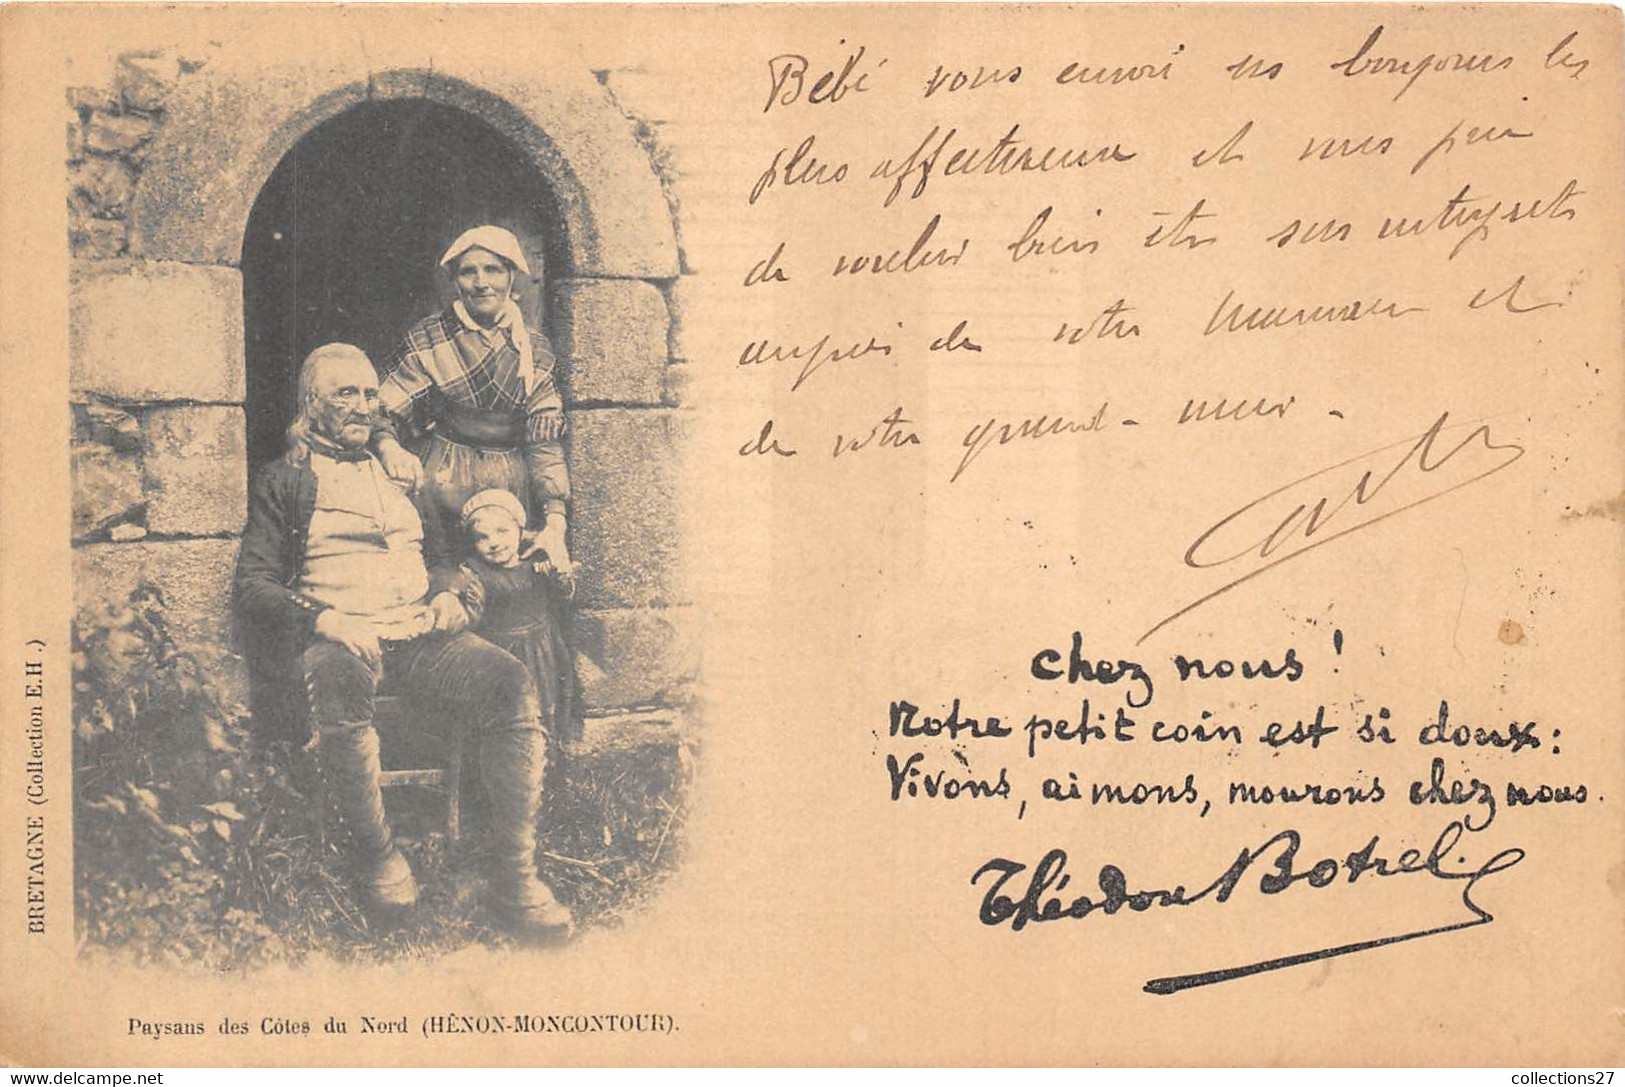 Bébé vous envoi ses bonjours les
plus affectueux et vous prie
de vouloir bien être son interprète
auprès de votre Maman et
de votre grand-mère.
chez nous !
Notre petit coin est si doux :
Vivons, aimons, mourons chez nous.
Théodore Botrel.
BRETAGNE (Collection E.H.)
Paysans des Côtes du Nord (HÉNON-MONCONTOUR).
collections27